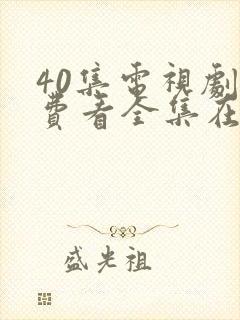 40集電視劇
費看全集在
盛光祖